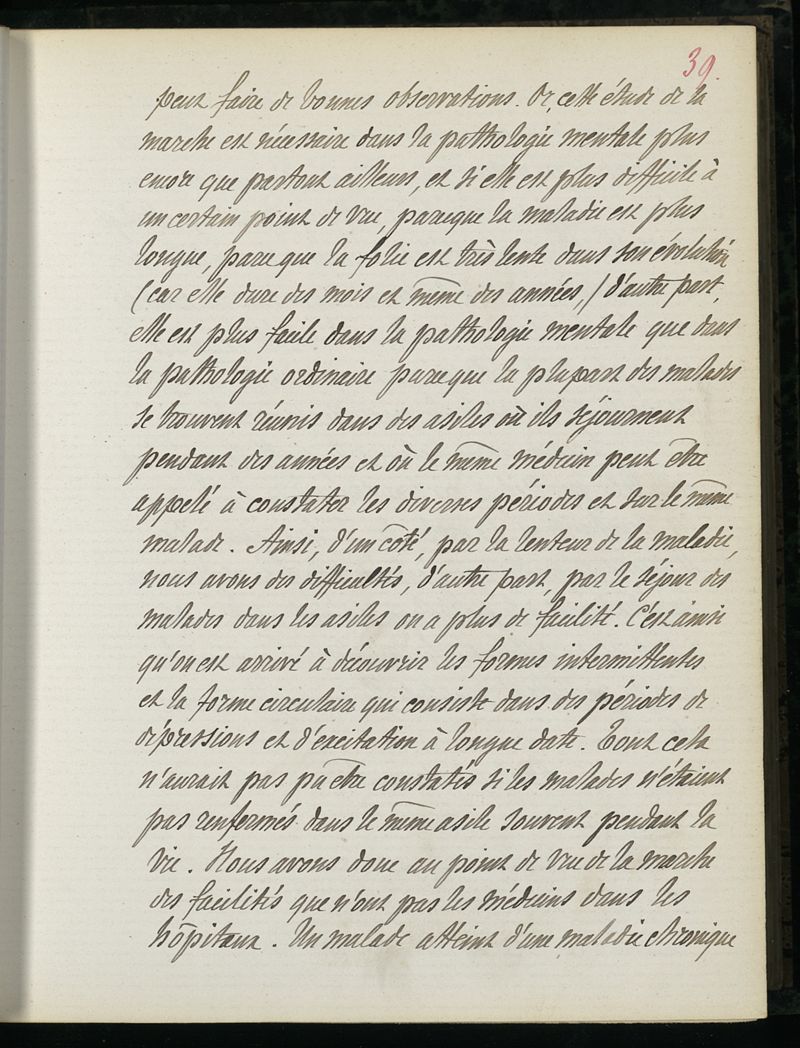 39.
peut faire de bonnes observations. Or, cette étude de la
marche est nécessaire dans la pathologie mentale plus
encore que partout ailleurs, et si elle est plus difficile à
un certain point de vue, parceque la maladie est plus
longue, parce que la folie est très lente dans son évolution
(car elle dure des mois et même des années,) d'autre part,
elle est plus facile dans la pathologie mentale que dans
la pathologie ordinaire parceque la plupart des malades
se trouvent réunis dans des asiles où ils séjournent
pendant des années et où le même médecin peut être
appelé à constater les diverses périodes et sur le même
malade. Ainsi, d'un côté, par la lenteur de la maladie,
nous avons des difficultés, d'autre part, par le séjour des
malades dans les asiles on a plus de facilité. C'est ainsi
qu'on est arrivé à découvrir les formes intermittentes
et la forme circulaire qui consiste dans des périodes de
dépressions et d'excitation à longue date. Tout cela
n'aurait pas pu être constatés si les malades n'étaient
pas renfermés dans le même asile souvent pendant la
vie. Nous avons donc au point de vue de la marche
des facilités que n'ont pas les médecins dans les
hôpitaux. Un malade atteint d'une maladie chronique